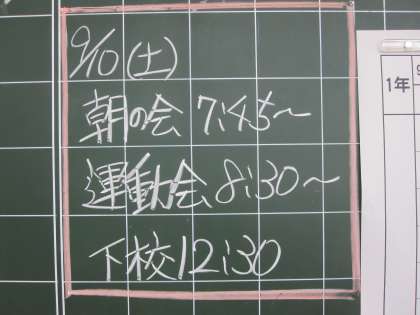 9/10(土)
朝の会 7:45～
運動会 8:30～
下校 12:30
1年